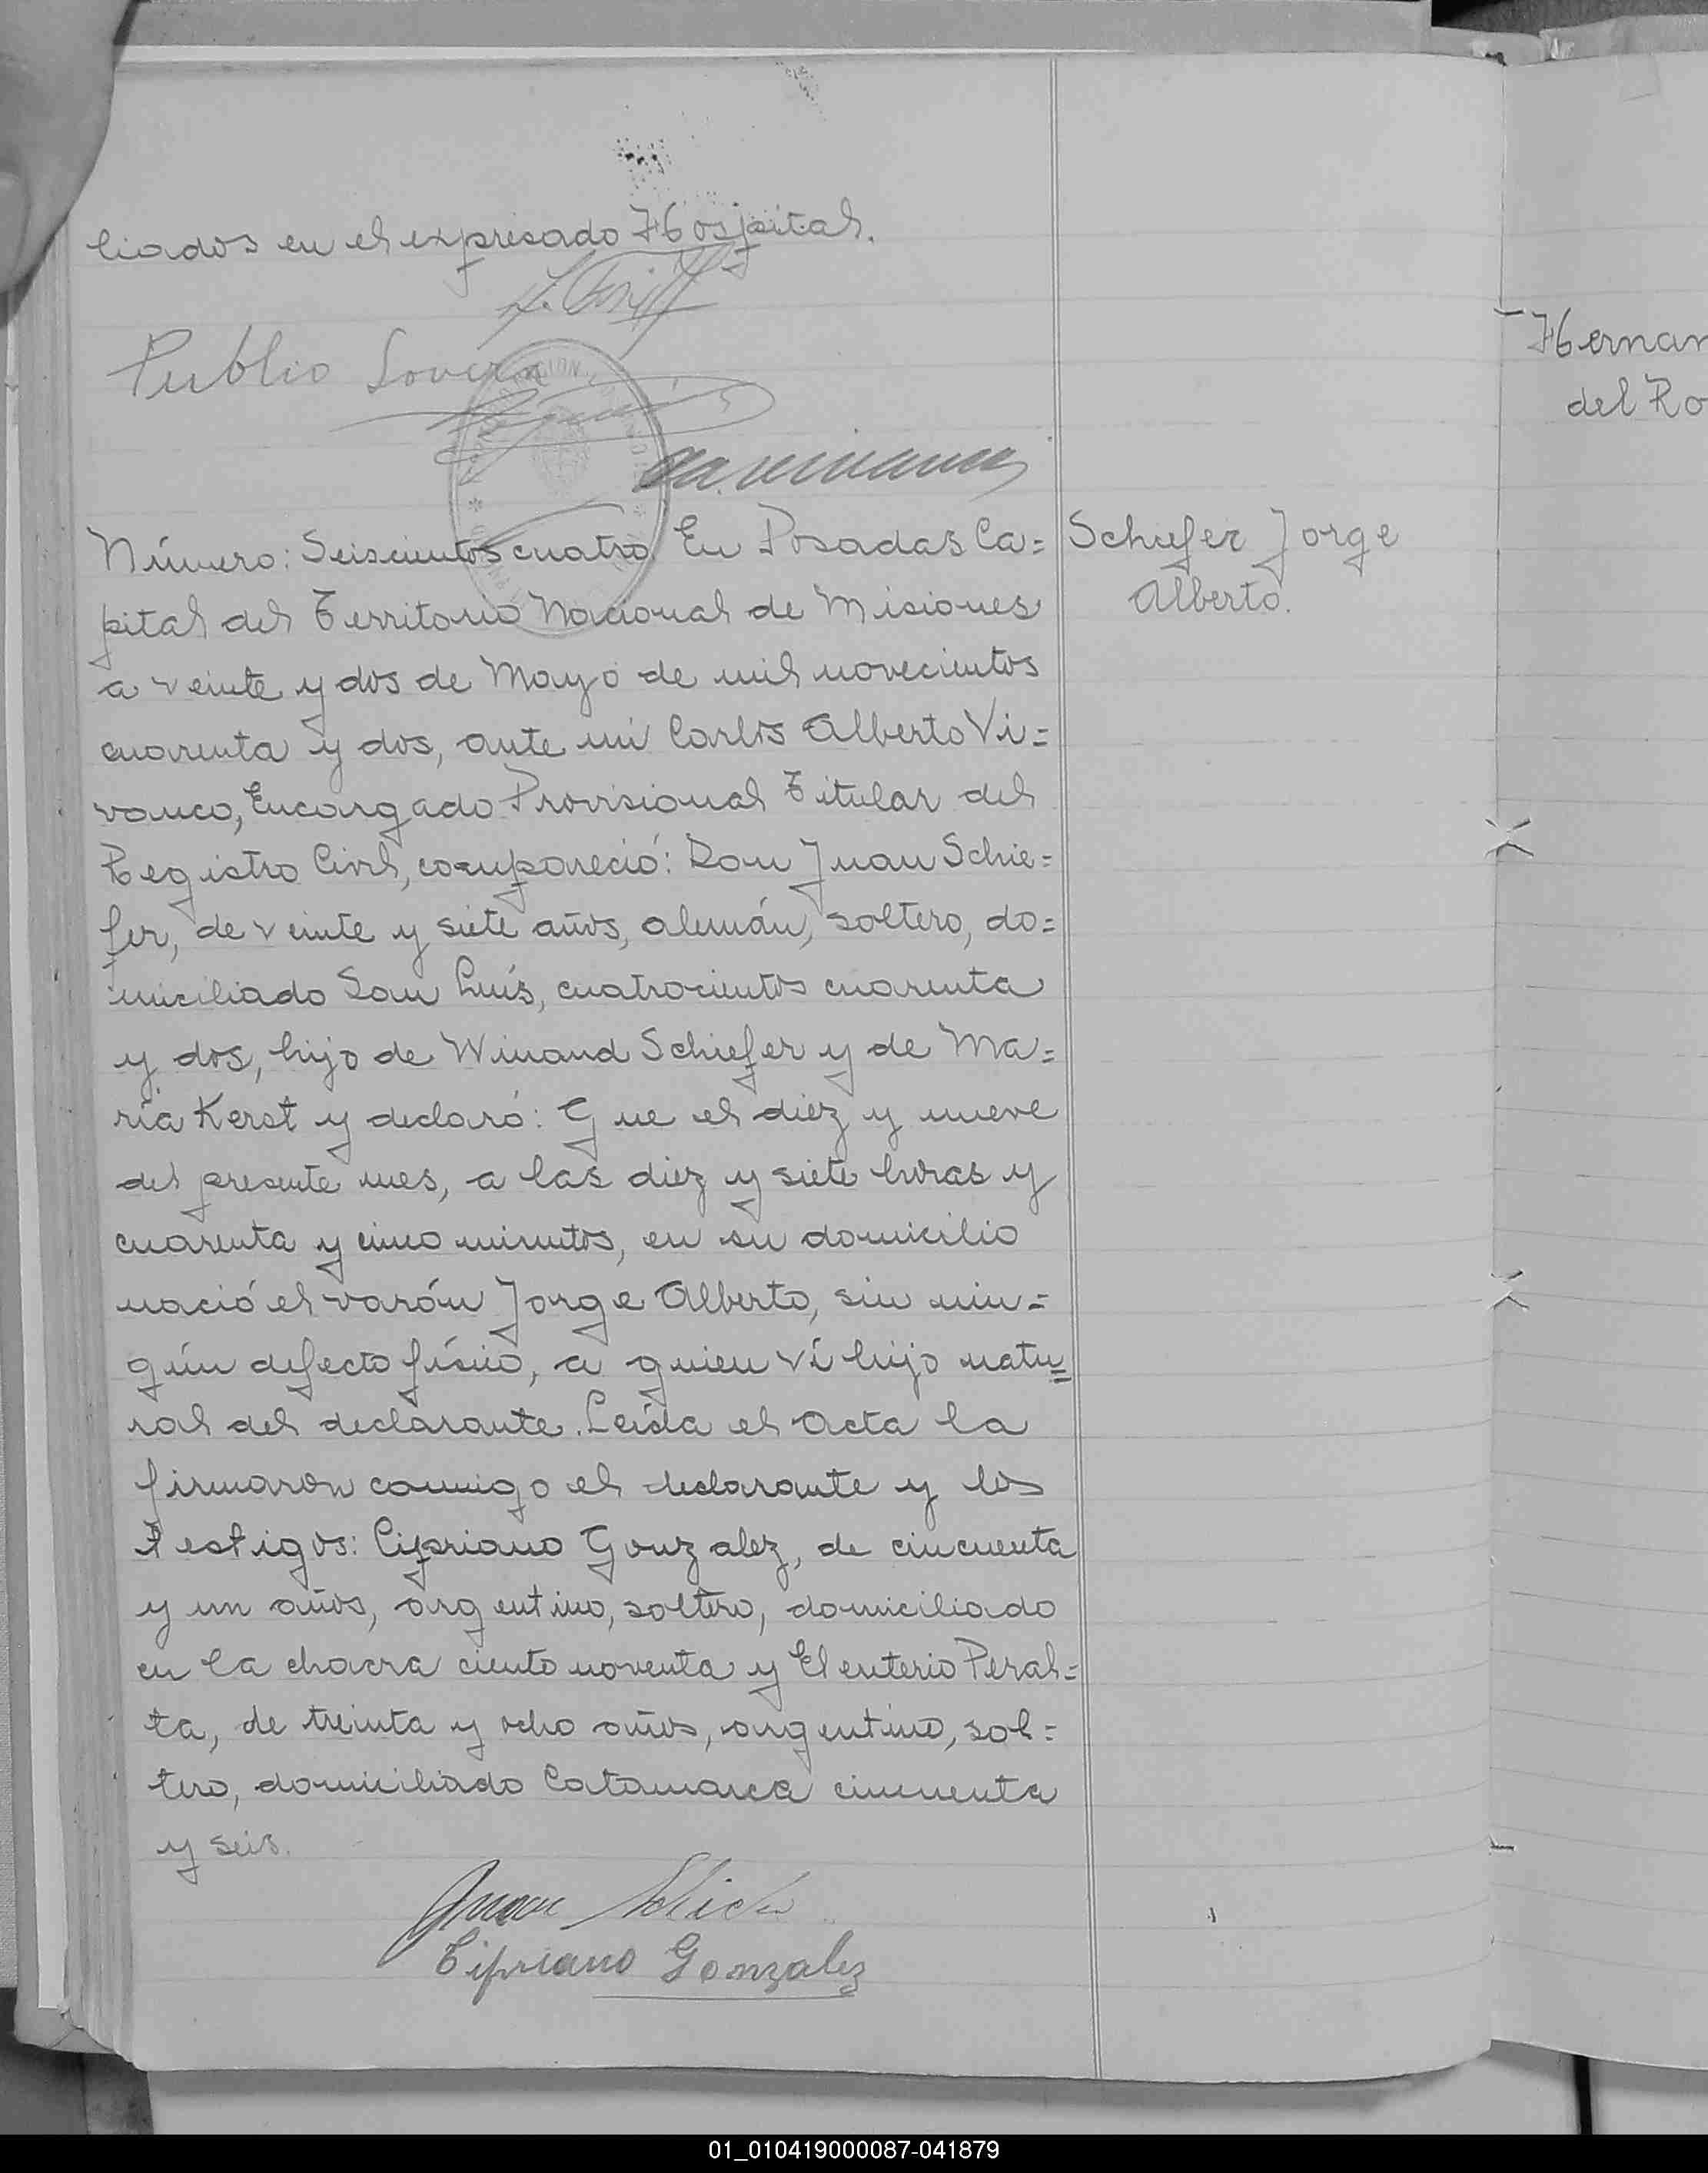 liados en el expresado Hospital.
Publio Lovera
Número: Seiscientos cuatro En Posadas Ca=
Schiefer Jorge
Alberto.
pital del Territorio Nacional de Misiones
a veinte y dos de Mayo de mil novecientos
cuarenta y dos, ante mi Carlos Alberto Vi=
vanco, Encargado Provisional Titular del
Registro Civil, compareció: Don Juan Schie=
fer, de veinte y siete años, alemán, soltero, do=
miciliado San Luís, cuatrocientos cuarenta
y dos, hijo de Winand Schiefer y de Ma=
ría Kerst y declaró: Que el diez y nueve
del presente mes, a las diez y siete horas y
cuarenta y cinco minutos, en su domicilio
nació el varón Jorge Alberto, sin nin=
gún defecto físico, a quien ví hijo natu=
ral del declarante. Leída el Acta la
firmaron conmigo el declarante y los
testigos: Cipriano Gonzalez, de cincuenta
y un años, argentino, soltero, domiciliado
en la chacra ciento noventa y Eleuterio Peral=
ta, de treinta y ocho años, argentino, sol=
tero, domiciliado Catamarca cincuenta
y seis.
Juan Schiefer
Cipriano Gonzalez
Hernan
del Ro
01_010419000087-041879